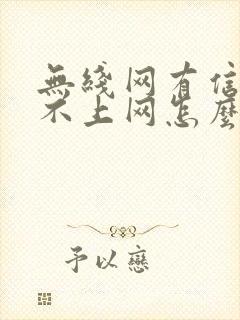 無綫网有信
不上网怎麽
予以戀